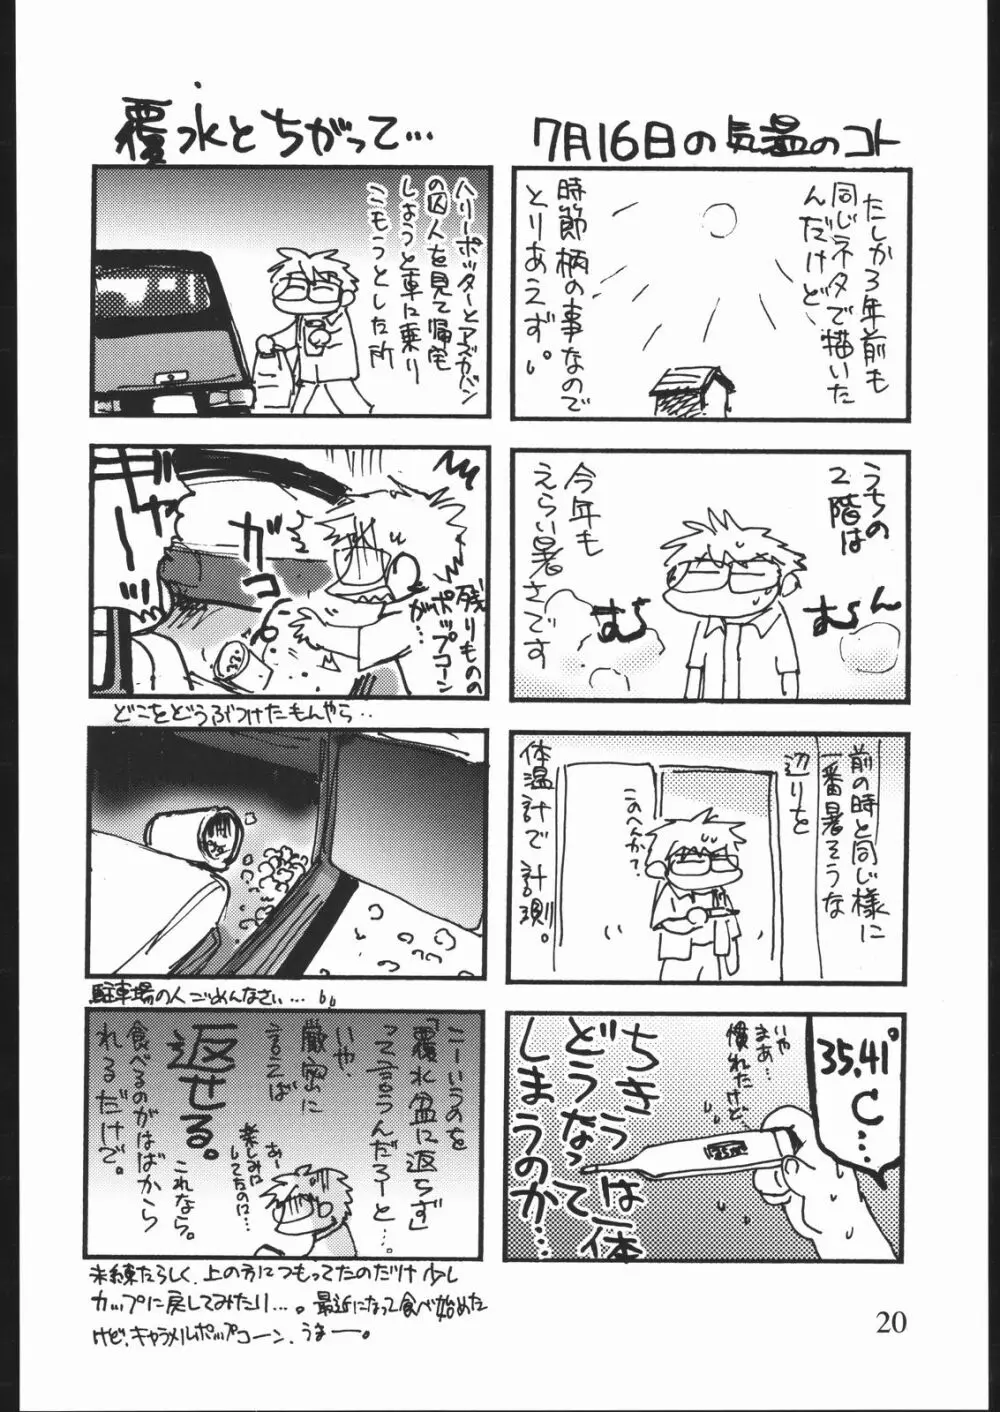 7月16日の気温のコト
たしか3年前も
同じネタで描いた
んだけど
時節柄の事なので
とりあえず。
うちの
2階は
今年も
えらい暑さです
むらん
むら
前の時と同じ様に
一番暑そうな
辺りを
このへんか?
体温計で計測。
35.41°
C…
いや
まあ…
慣れたけど…
ちきうは一体
どうなって
しまうのか…
覆水とちがって…
ハリーポッターとアズカバン
の囚人を見て帰宅
しようと車に乗り
こもうとした所
ガコ
残りものの
ポップコーン
が…
どこをどうぶつけたもんやら..
駐車場の人ごめんなさい…
こーいうのを
「覆水盆に返らず」
って言うんだろーと…。
いや、
厳密に
言えば
返せる。
これなら。
食べるのがはばから
れるだけで。
あー
楽しみに
してたのに…
未練たらしく、上の方につもってたのだけ少し
カップに戻してみたり…。最近になって食べ始めた
けど、キャラメルポップコーン、うまー。
20